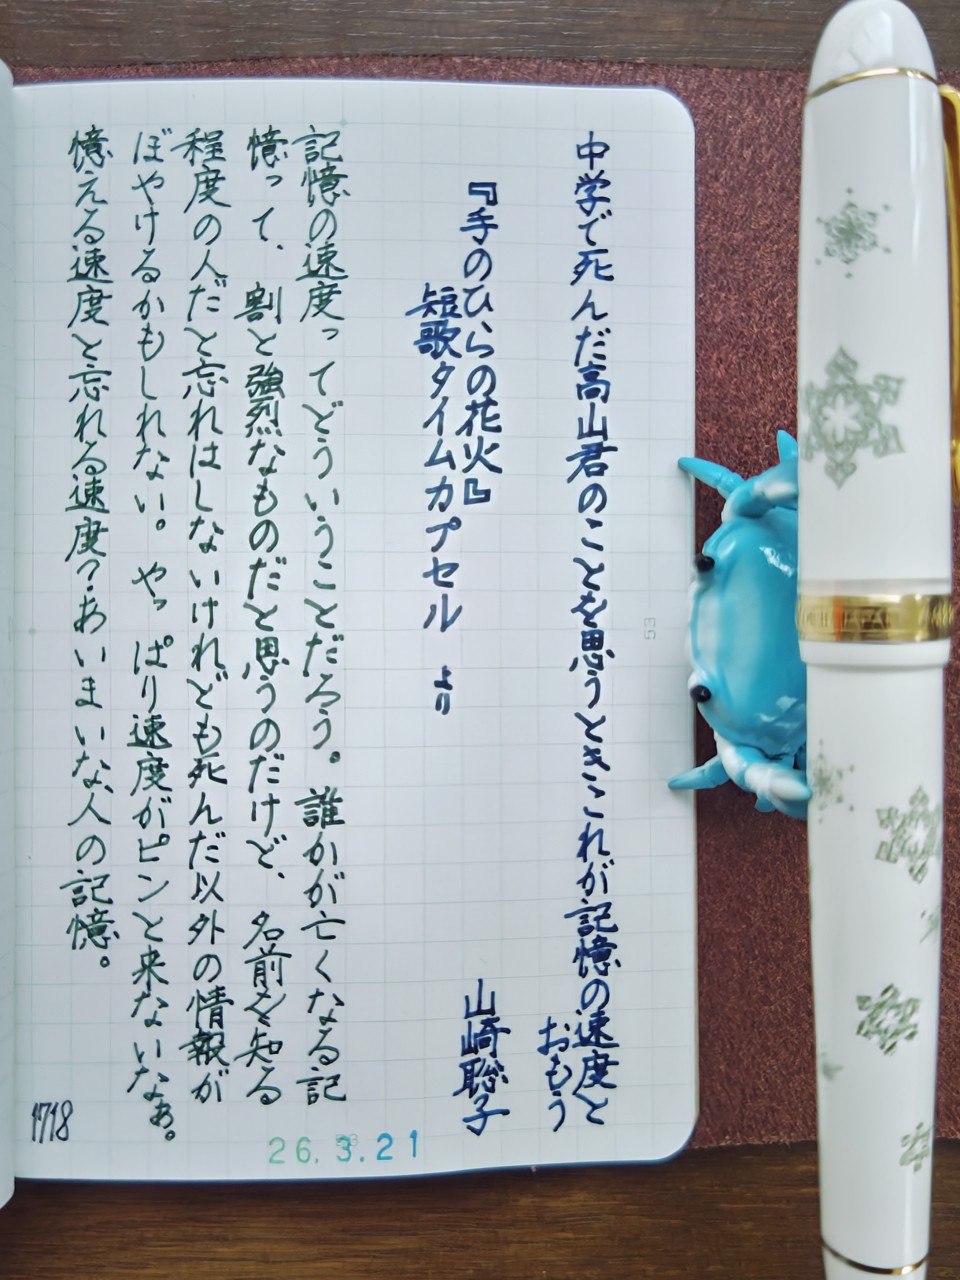 中学で死んだ高山君のことを思うときこれが記憶の速度と
おもう
『手のひらの花火』
山崎聡子
短歌タイムカプセル より
記憶の速度ってどういうことだろう。誰かが亡くなる記
憶って、割と強烈なものだと思うのだけど、名前を知る
程度の人だと忘れはしないけれども死んだ以外の情報が
ぼやけるかもしれない。やっぱり速度がピンと来ないなぁ。
憶える速度と忘れる速度?あいまいな人の記憶。
1718
26.3.21
53